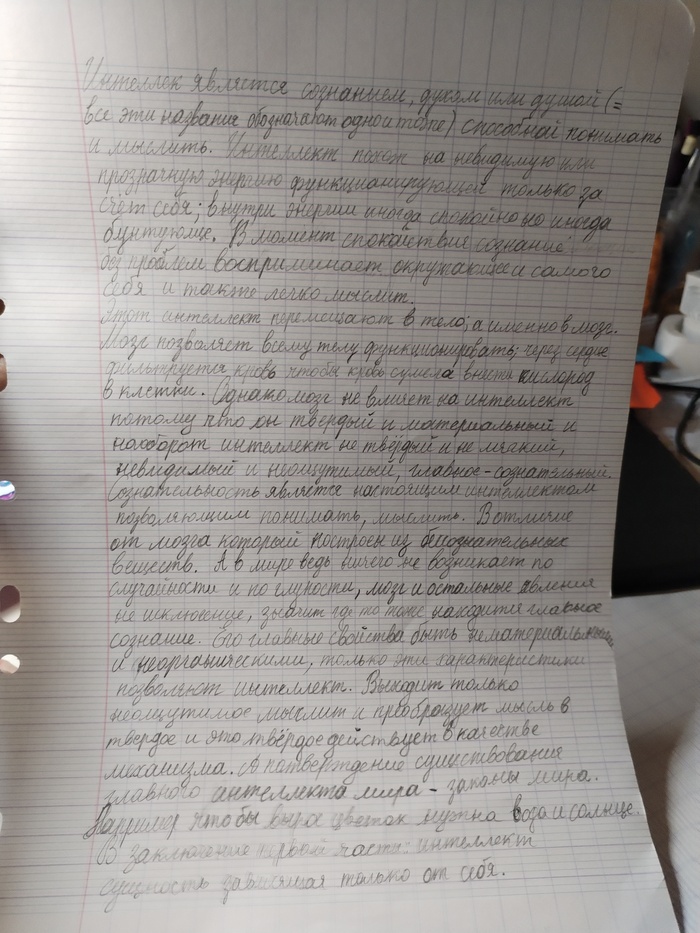 Интеллек является сознанием, духом или душой (=
все эти название обозначают одно и тоже) способной понимать
и мыслить. Интеллект похож на невидимую или
прозрачную энергию функцианирующей только за
счёт себя; внутри энергии иногда спокойно но иногда
бунтующе. В момент спокойствие сознание
без проблем воспринимает окружающее и самого
себя и также легко мыслит.
Этот интеллект перемещают в тело; а именно в мозг.
Мозг позволяет всему телу функционировать; через сердце
фильтруется кровь чтобы кровь сумела внить кислород
в клетки. Однако мозг не влияет на интеллект
потому что он твёрдый и материальный и
наоборот интеллект не твёрдый и не мягкий,
невидимый и неощутимый, главное-сознательный.
Сознательность является настоящим интеллектом
позволяющим понимать, мыслить. В отличие
от мозга который построен из бессознательных
веществ. А в мире ведь ничего не возникает по
случайности и по глупости, мозг и остальные явления
не исключение, значит где то тоже находится главное
сознание. Его главные свойства быть нематериальными
и неорганическими, только эти характеристики
позволяют интеллект. Выходит только
неощутимое мыслит и преобразует мысль в
твердое и это твёрдое действует в качестве
механизма. А потверждение существования
главного интеллекта мира - законы мира.
Например чтобы вырос цветок нужна вода и солнце.
В заключение первой части: интеллект
сущность зависящая только от себя.